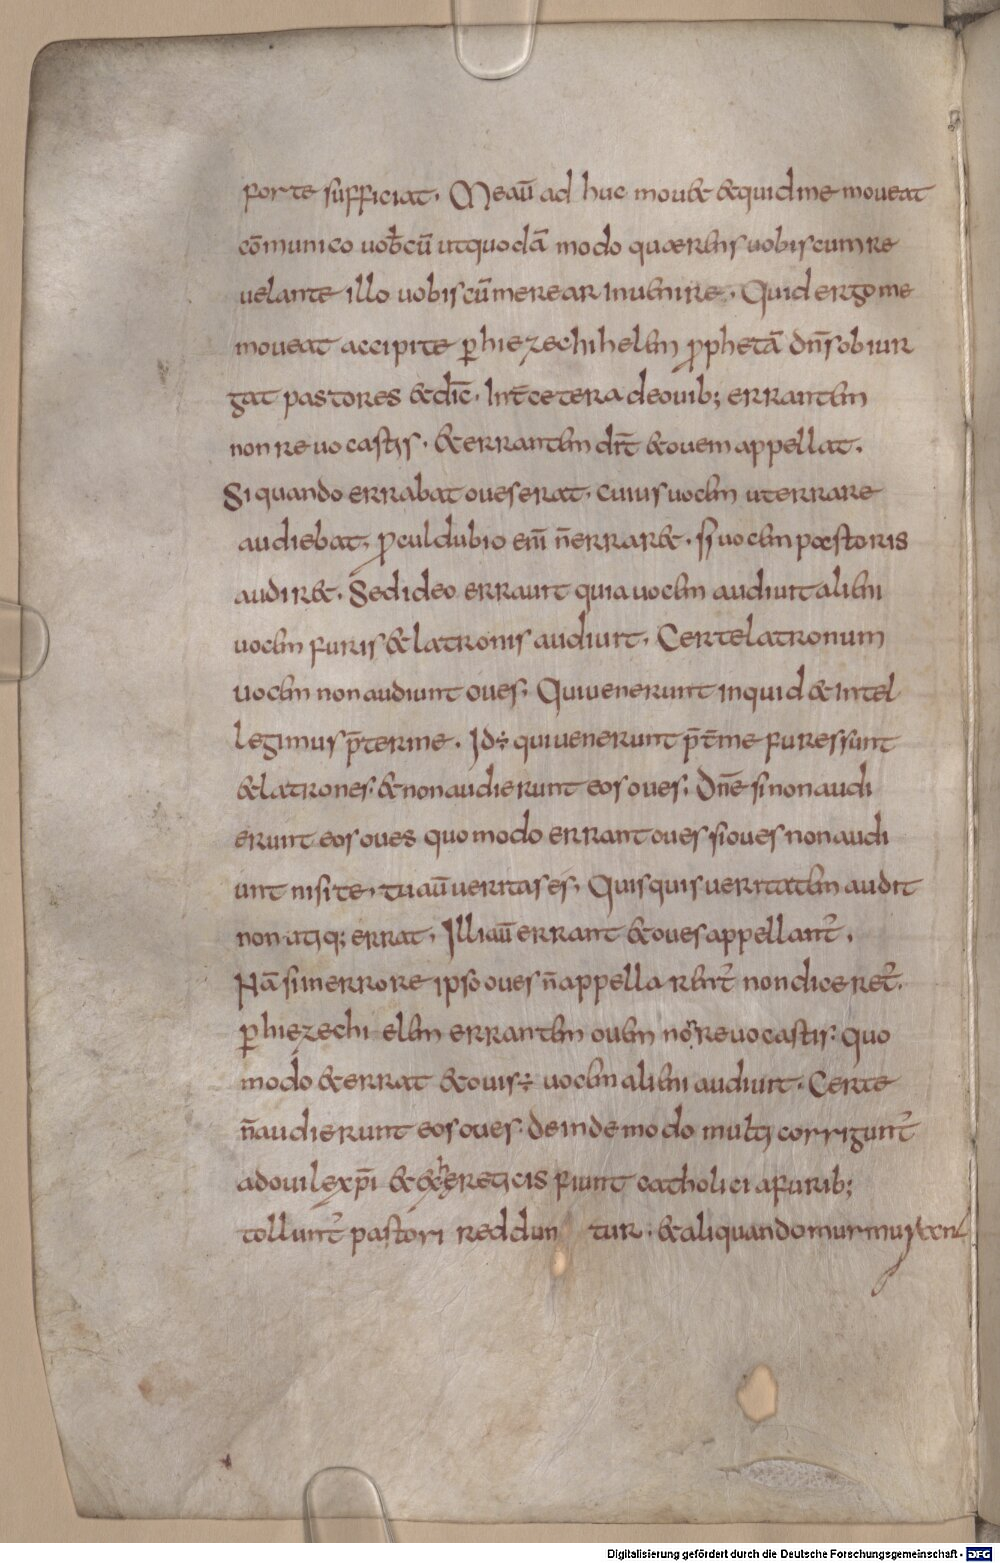 forte sufficiat. Meaū ad huc mou& &quid me moueat
cōmunico uob̄cū ut quodā modo quaerens uobiscum re
uelante illo uobiscū merear inuenire. Quid ergo me
moueat accipite ꝑ hiezechihelem ꝓphetā dn̄s obiur
gat pastores & dīc. Int̄ cetera de ouib; errantem
non reuocastis. & errantem dix̄ & ouem appellat.
Si quando errabat oues erat. cuius uocem ut errare
audiebat, ꝓculdubio enī n̄ errar&. si uocem pastoris
audir&. Sed ideo errauit quia uocem audiuit alieni
uocem furis & latronis audiuit. Certe latronum
uocem non audiunt oues. Qui uenerunt inquid & intel
legimus p̄ter me. Id ÷ qui uenerunt p̄t̄ me fures sunt
& latrones. & non audierunt eos oues. Dn̄e si non audi
erunt eos oues quomodo errant oues si oues non audi
unt nisi te, tu aū ueritas es, Quisquis ueritatem audit
non atiq; errat, Illi aū errant & oues appellant᷑.
Nā si in errore ipso oues n̄ appellarent᷑ non diceret᷑.
ꝑ hiezechielem errantem ouem nō reuocastis. Quo
modo & errat & ouis ÷ uocem alieni audiuit. Certe
n̄ audierunt eos oues. deinde modo multi corrigunt᷑
ad ouile xp̄i & exhereticis fiunt catholici a furib;
tollunt᷑ pastori reddun tur. & aliquando murmurant